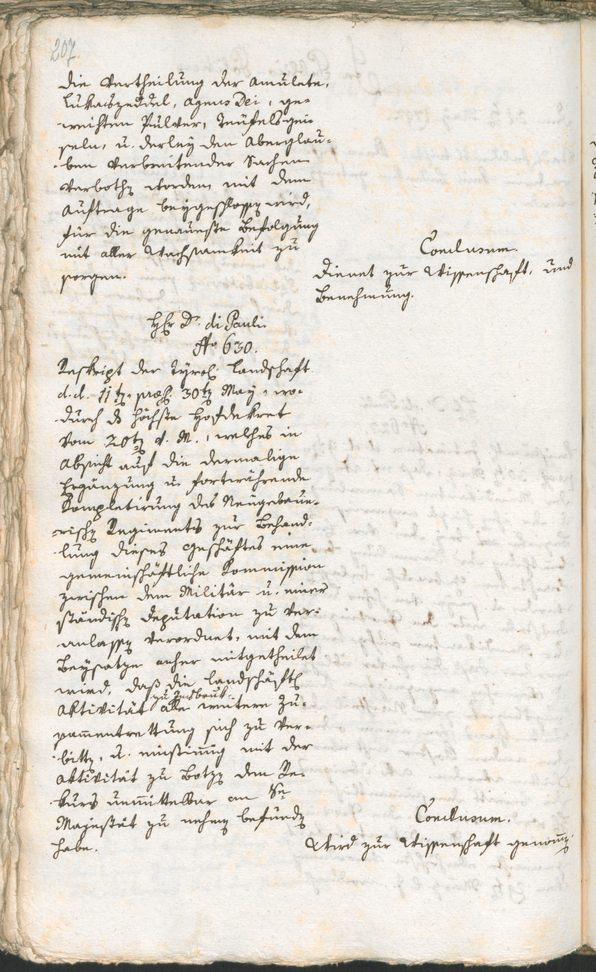 207
die Vertheilung der Amulete,
Lukaszeddul, Agnus Dei, ge-
weichten Pulver, Teufelsgei-
seln, u. derley den Aberglau-
ben verbreitender Sachen
verbothen worden mit dem
Auftrage beygeschlossen wird,
für die genaueste Befolgung
mit aller Wachsamkeit zu
sorgen.
Conclusum.
Dienet zur Wissenschaft, und
Benehmung.
Hr Dr. di Pauli
No 630.
Reskript der Tyrol. Landschaft
d.d. 11ten praes. 30ten May, wo-
durch das höchste Hofdekret
vom 20ten d. M., welches in
Absicht auf die dermalige
Ergänzung u. fortwährende
Completirung des Neugebaue-
rischen Regiments zur Behand-
lung dieses Geschäftes eine
gemeinschäftliche Kommission
zwischen dem Militär u. einer
ständischen Deputation zu ver-
anlassen verordnet, mit dem
Beysatze anher mitgetheilet
wird, daß die landschäftl.
Aktivität zu Innsbruk alle weitere Zu-
sammentrettung sich zu ver-
bitten, u. einstimig mit der
Aktivität zu Botzen den Re-
kurs unmittelbar an Se
Majestät zu nehmen befunden
habe.
Conclusum.
Wird zur Wissenschaft genommen.